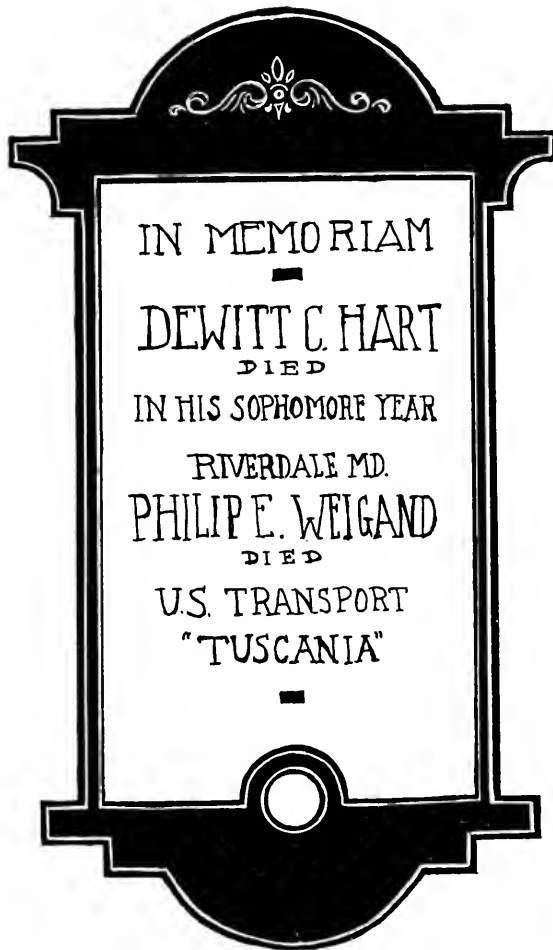 IN MEMORIAM
DEWITT C. HART
DIED
IN HIS SOPHOMORE YEAR
RIVERDALE MD.
PHILIP E. WEIGAND
DIED
U.S. TRANSPORT
"TUSCANIA"